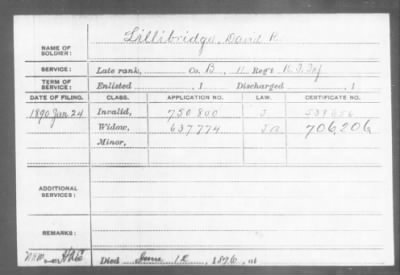 NAME OF SOLDIER: Lillibridge, David R.
SERVICE: Late rank, Co. B, 11 Reg't R. I. Inf
TERM OF SERVICE: Enlisted , 1 Discharged , 1
DATE OF FILING. CLASS. APPLICATION NO. LAW. CERTIFICATE NO.
1890 Jan 24 Invalid, 750 800 J
Widow, 637774 706206
Minor,
ADDITIONAL SERVICES:
REMARKS:
Died June 12, 1896, at